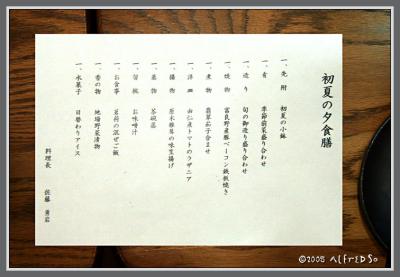 初夏の夕食膳
一、先附 初夏の小鉢
一、肴 季節前菜盛り合わせ
一、造り 旬の御造り盛り合わせ
一、焼物 富良野産豚ベーコン鉄板焼き
一、煮物 翡翠茄子合ませ
一、洋皿 由仁産トマトのラザニア
一、揚物 原木椎茸の味噌揚げ
一、蒸物 茶碗蒸
一、留椀 お味噌汁
一、お食事 茗荷の混ぜご飯
一、香の物 地場野菜漬物
一、水菓子 日替わりアイス
料理長 佐藤
©2008 ALfrEDSo